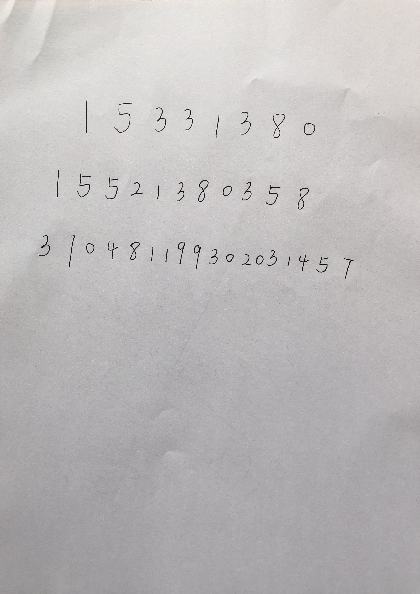 15331380
15521380358
310481199302031457